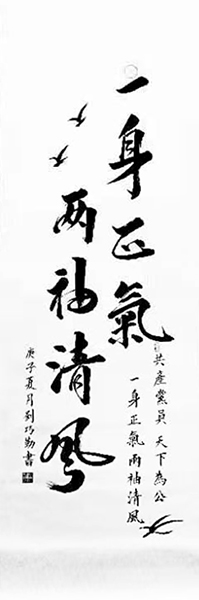 一身正氣
两袖清風
共產黨員 天下為公
一身正氣 两袖清風
庚子夏月刘巧勤書